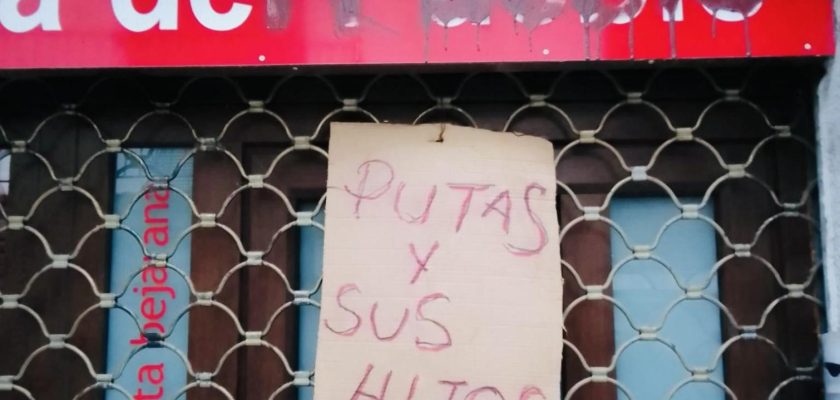 a de
PUTAS
Y
SUS
HIJOS
ta bejarana